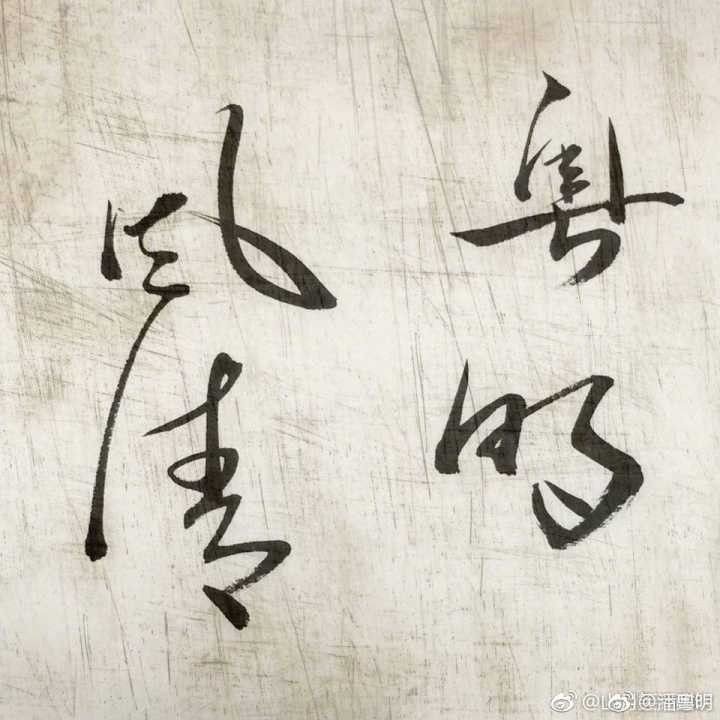 粤明
风清
@潘粤明